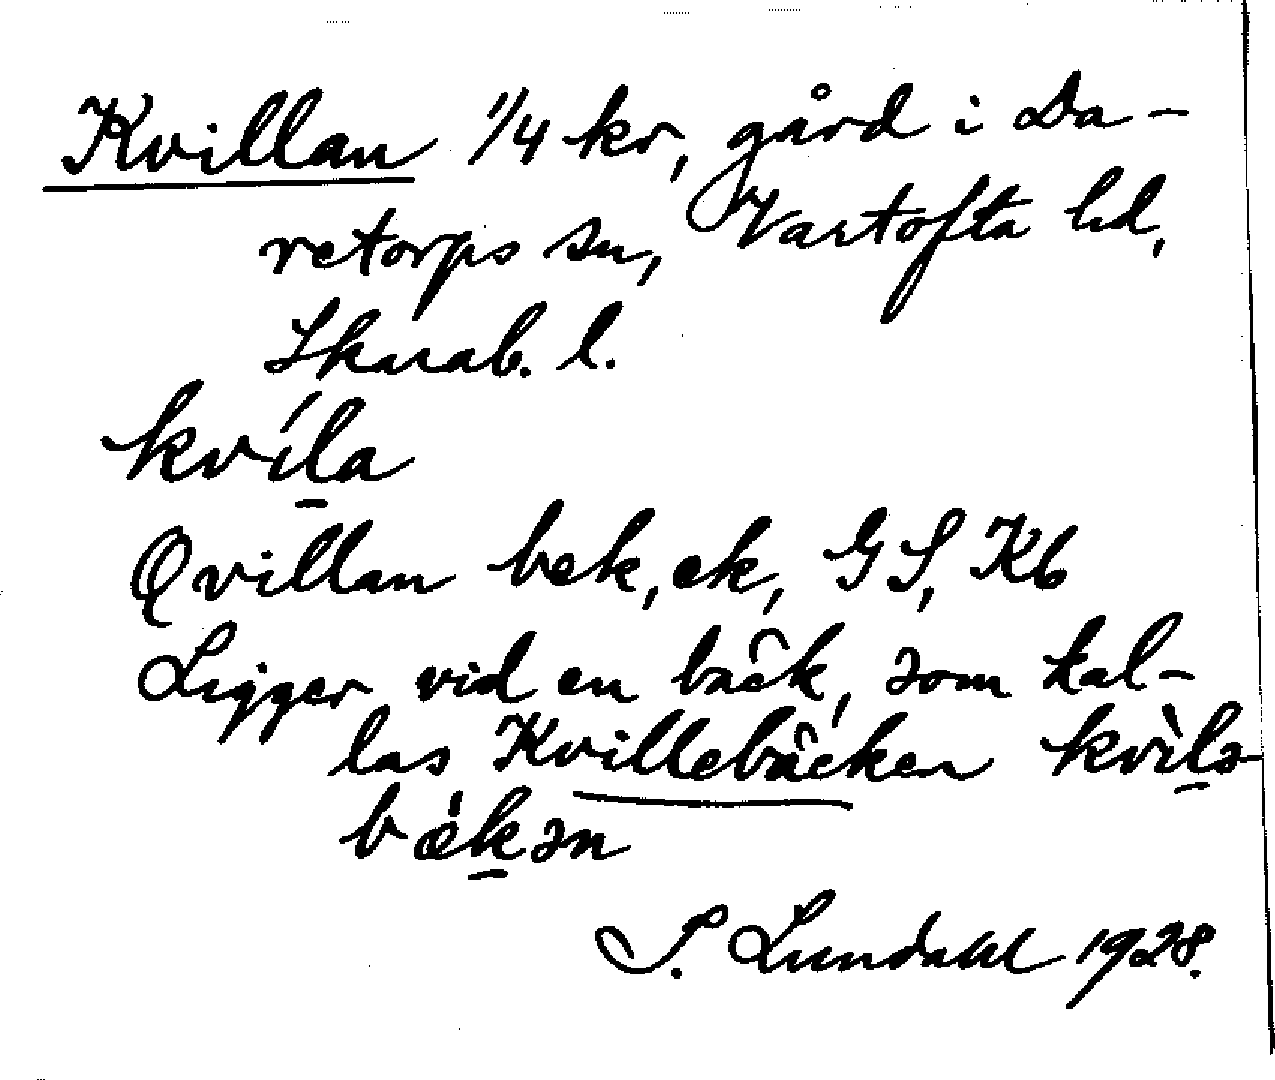 Kvillan 1/4 kr, gård i Da-
retorps sn, Vartofta hd,
Skarab. l.
kvíl̠a
Qvillan bek, ek, GS, Kb
Ligger vid en bäck, som kal-
las Kvillebäcken kvìl̠ə-
bæ̀k̠ən
S. Lundahl 1928.